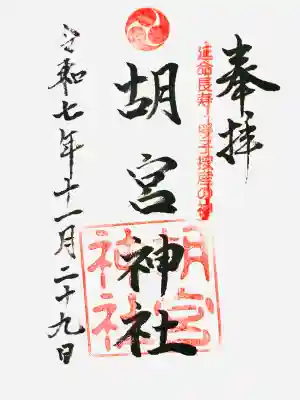 奉拝
延命長寿・子授安産の神
胡宮神社
胡宮神社
令和七年十一月二十九日